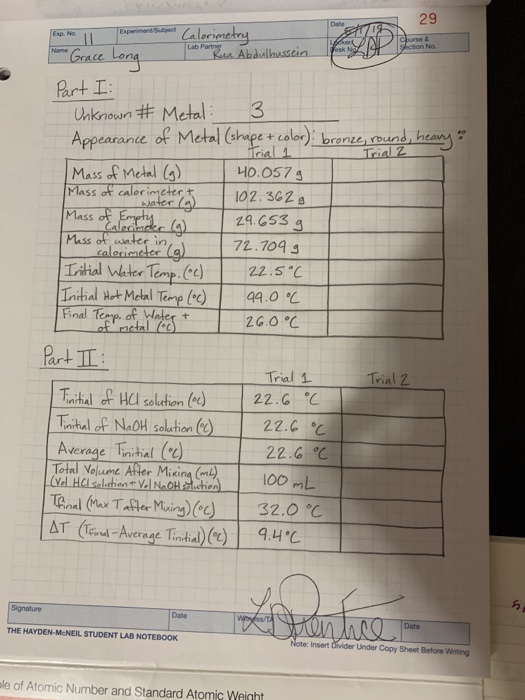 29
Exp. No. 11 Experiment/Subject Calorimetry Date
Name Grace Long Lab Partner Rua Abdulhussein Locker/ Desk No. Course & Section No.
Part I:
Unknown # Metal: 3
Appearance of Metal (shape + color): bronze, round, heavy
Trial 1 Trial 2
Mass of Metal (g) 40.057 g
Mass of calorimeter + water (g) 102.362 g
Mass of Empty Calorimeter (g) 29.653 g
Mass of water in calorimeter (g) 72.709 g
Initial Water Temp. (°C) 22.5 °C
Initial Hot Metal Temp (°C) 99.0 °C
Final Temp. of Water + of metal (°C) 26.0 °C
Part II:
Trial 1 Trial 2
Tinitial of HCl solution (°C) 22.6 °C
Tinitial of NaOH solution (°C) 22.6 °C
Average Tinitial (°C) 22.6 °C
Total Volume After Mixing (mL)
(Vol HCl solution + Vol NaOH solution) 100 mL
Tfinal (Max T after Mixing) (°C) 32.0 °C
ΔT (Tfinal - Average Tinitial) (°C) 9.4 °C
Signature Date Witness/TA Date
THE HAYDEN-McNEIL STUDENT LAB NOTEBOOK
Note: Insert Divider Under Copy Sheet Before Writing
le of Atomic Number and Standard Atomic Weight